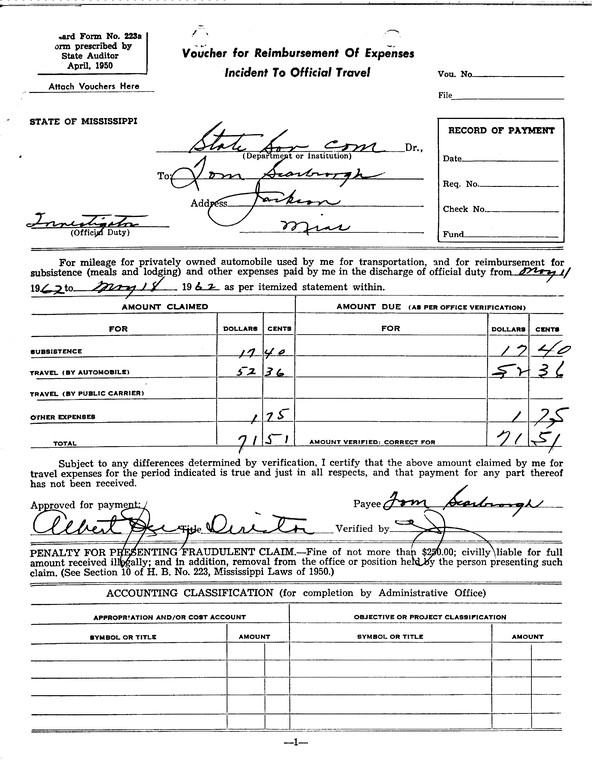 ard Form No. 223a
orm prescribed by
State Auditor
April, 1950
Attach Vouchers Here
Voucher for Reimbursement Of Expenses
Incident To Official Travel
Vou. No.
File
STATE OF MISSISSIPPI
State Sov Com Dr.,
(Department or Institution)
To Tom Scarbrough
Address Jackson
Miss
Investigator
(Official Duty)
RECORD OF PAYMENT
Date
Req. No.
Check No.
Fund
For mileage for privately owned automobile used by me for transportation, and for reimbursement for
subsistence (meals and lodging) and other expenses paid by me in the discharge of official duty from May 11
1962 to May 18 1962 as per itemized statement within.
AMOUNT CLAIMED AMOUNT DUE (AS PER OFFICE VERIFICATION)
FOR DOLLARS CENTS FOR DOLLARS CENTS
SUBSISTENCE 17 40 17 40
TRAVEL (BY AUTOMOBILE) 52 36 52 36
TRAVEL (BY PUBLIC CARRIER)
OTHER EXPENSES 1 75 1 75
TOTAL 71 51 AMOUNT VERIFIED: CORRECT FOR 71 51
Subject to any differences determined by verification, I certify that the above amount claimed by me for
travel expenses for the period indicated is true and just in all respects, and that payment for any part thereof
has not been received.
Approved for payment: Payee Tom Scarbrough
Albert Title Director Verified by
PENALTY FOR PRESENTING FRAUDULENT CLAIM.—Fine of not more than $250.00; civilly liable for full
amount received illegally; and in addition, removal from the office or position held by the person presenting such
claim. (See Section 10 of H. B. No. 223, Mississippi Laws of 1950.)
ACCOUNTING CLASSIFICATION (for completion by Administrative Office)
APPROPRIATION AND/OR COST ACCOUNT OBJECTIVE OR PROJECT CLASSIFICATION
SYMBOL OR TITLE AMOUNT SYMBOL OR TITLE AMOUNT
—1—